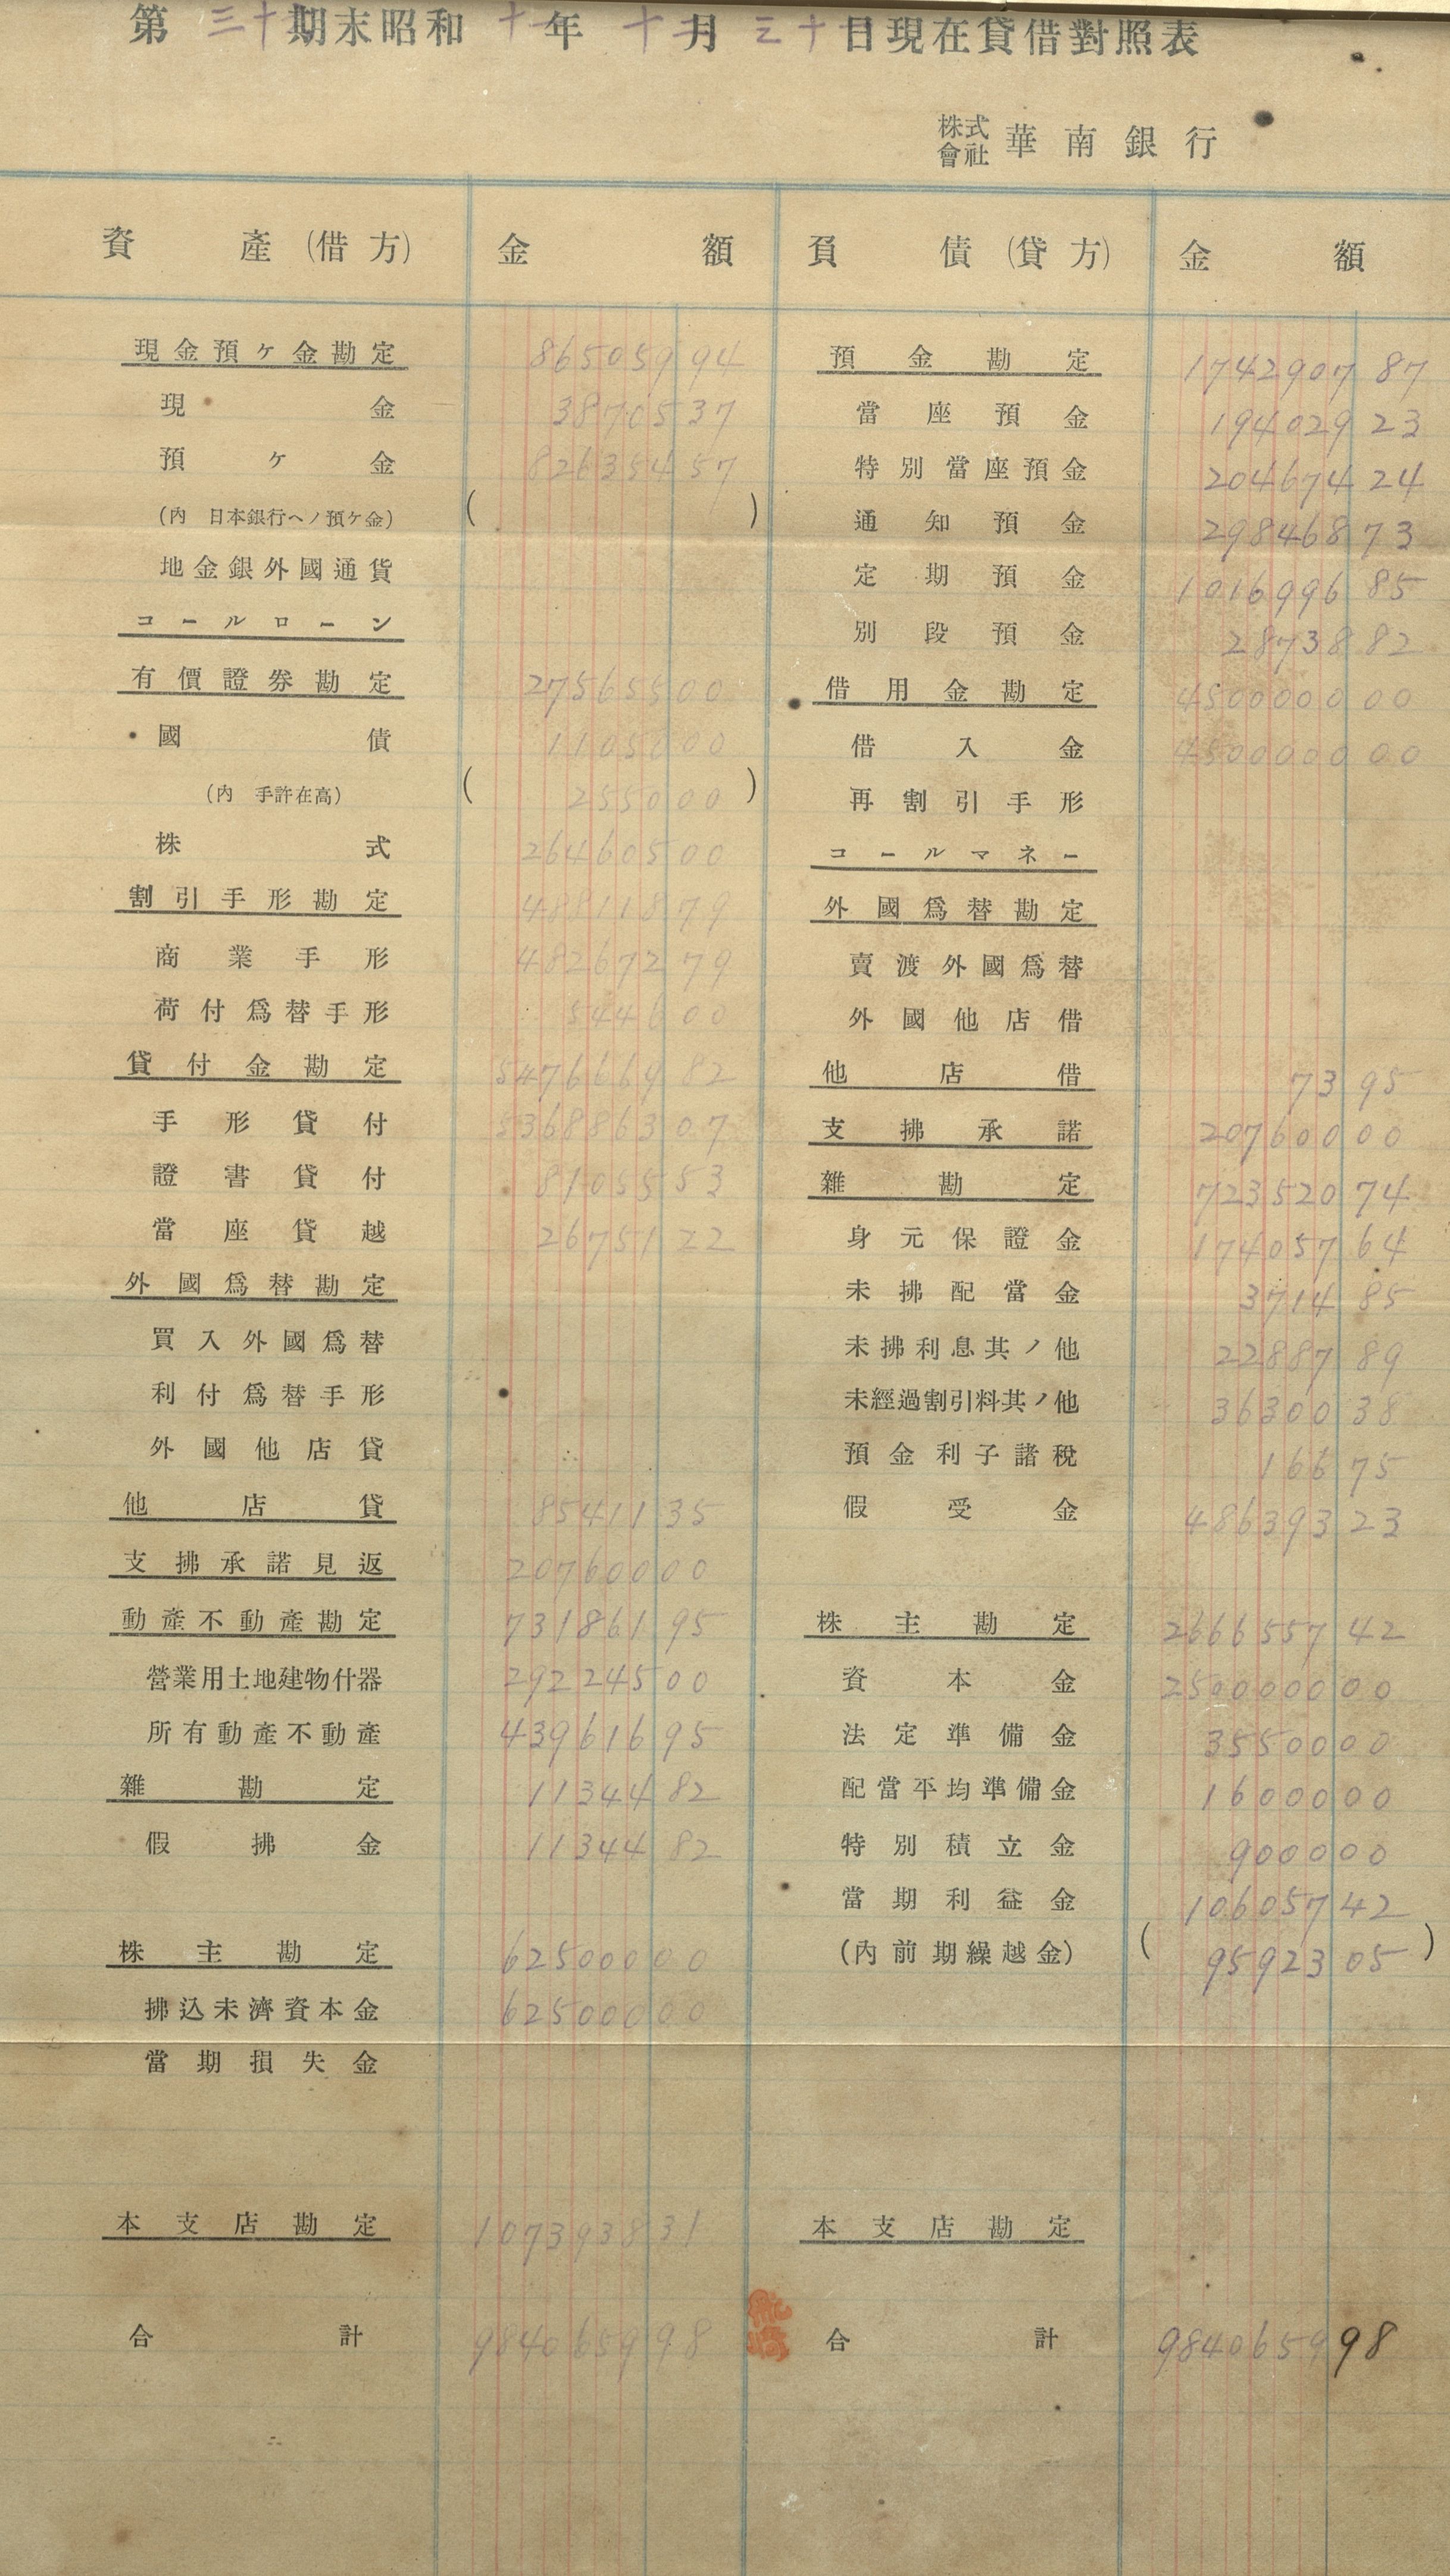 第三十期末昭和十年十月三十日現在貸借對照表
株式會社 華南銀行
資產(借方) 金額
現金預ケ金勘定 865059 94
現金 38705 37
預ケ金 826354 57
(內 日本銀行ヘノ預ケ金) ( )
地金銀外國通貨
コールローン
有價證券勘定 275655 00
國債 11050 00
(內 手許在高) ( 2550 00 )
株式 264605 00
割引手形勘定 488118 79
商業手形 482672 79
荷付爲替手形 5446 00
貸付金勘定 5476669 82
手形貸付 5368863 07
證書貸付 81055 53
當座貸越 26751 22
外國爲替勘定
買入外國爲替
利付爲替手形
外國他店貸
他店貸 85411 35
支拂承諾見返 207600 00
動產不動產勘定 731861 95
營業用土地建物什器 292245 00
所有動產不動產 439616 95
雜勘定 11344 82
假拂金 11344 82
株主勘定 625000 00
拂込未濟資本金 625000 00
當期損失金
本支店勘定 1073938 31
合計 9840659 98
負債(貸方) 金額
預金勘定 1742907 87
當座預金 194029 23
特別當座預金 204674 24
通知預金 298468 73
定期預金 1016996 85
別段預金 28738 82
借用金勘定 4500000 00
借入金 4500000 00
再割引手形
コールマネー
外國爲替勘定
賣渡外國爲替
外國他店借
他店借 73 95
支拂承諾 207600 00
雜勘定 723520 74
身元保證金 174057 64
未拂配當金 3714 85
未拂利息其ノ他 22887 89
未經過割引料其ノ他 36300 38
預金利子諸稅 166 75
假受金 486393 23
株主勘定 2666557 42
資本金 2500000 00
法定準備金 35500 00
配當平均準備金 16000 00
特別積立金 9000 00
當期利益金 106057 42
(內前期繰越金) ( 95923 05 )
本支店勘定
合計 9840659 98